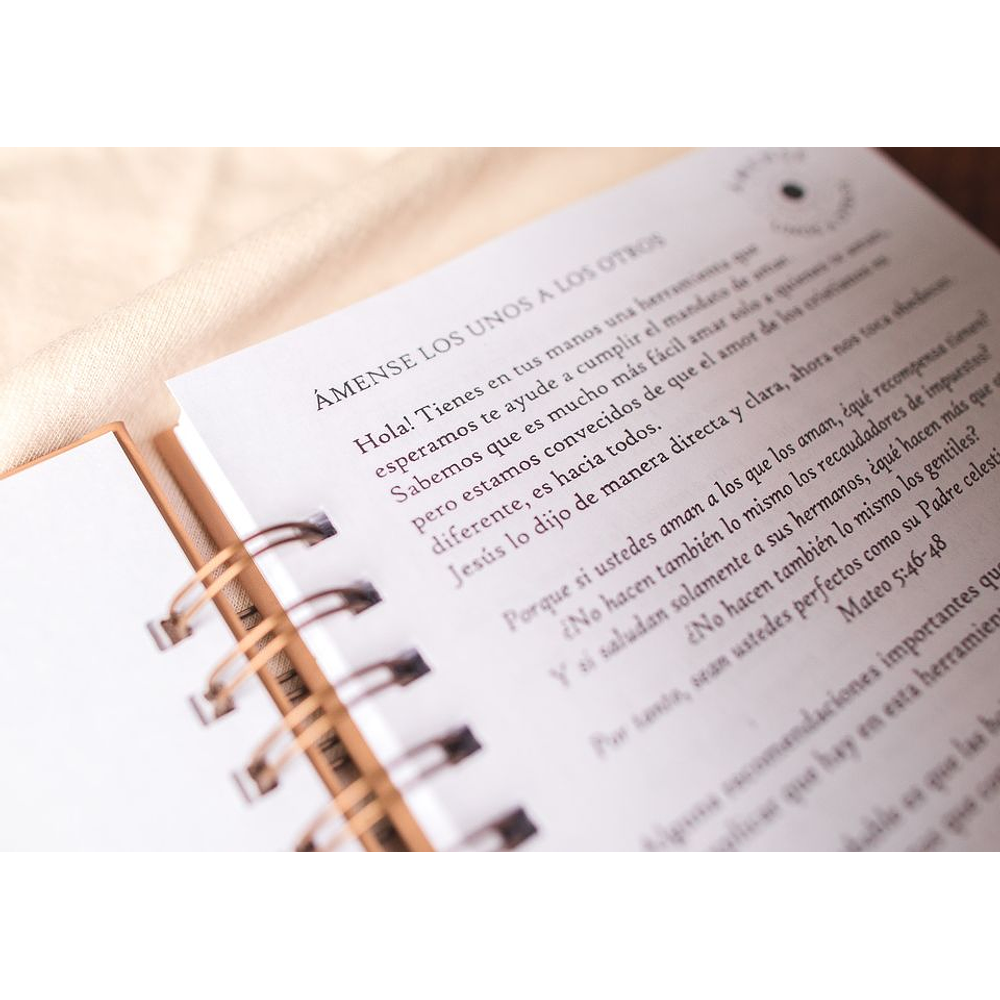 ÁMENSE LOS UNOS A LOS OTROS
Hola! Tienes en tus manos una herramienta que
esperamos te ayude a cumplir el mandato de amar.
Sabemos que es mucho más fácil amar solo a quienes te aman,
pero estamos convecidos de que el amor de los cristianos es
diferente, es hacia todos.
Jesús lo dijo de manera directa y clara, ahora nos toca obedecer:
Porque si ustedes aman a los que los aman, ¿qué recompensa tienen?
¿No hacen también lo mismo los recaudadores de impuestos?
Y si saludan solamente a sus hermanos, ¿qué hacen más que
¿No hacen también lo mismo los gentiles?
Por tanto, sean ustedes perfectos como su Padre celesti
Mateo 5:46-48
Alguna recomendaciones importantes que
que hay en esta herramien
es que las